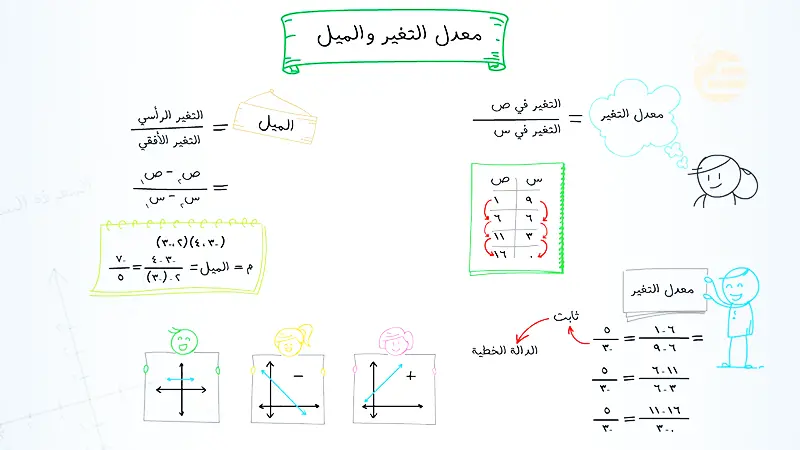 معدل التغير والميل
معدل التغير = التغير في ص / التغير في س
س ص
٩ ١
٦ ٦
٣ ١١
٠ ١٦
معدل التغير
= ٦-١ / ٦-٩ = ٥ / ٣-
١١-٦ / ٣-٦ = ٥ / ٣-
١٦-١١ / ٠-٣ = ٥ / ٣-
ثابت
الدالة الخطية
الميل = التغير الرأسي / التغير الأفقي
= ص٢ - ص١ / س٢ - س١
(-٣، ٤) (٢، -٣)
م = الميل = -٣-٤ / ٢-(-٣) = -٧ / ٥
+
-